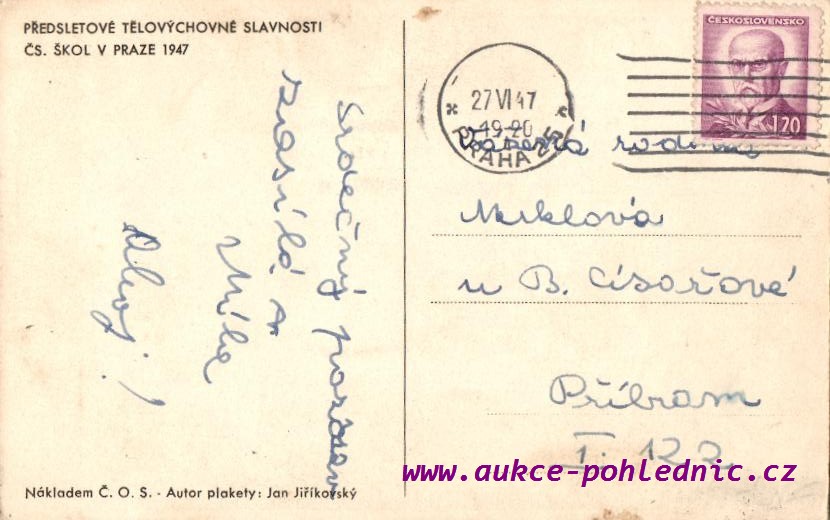 PŘEDSLETOVÉ TĚLOVÝCHOVNÉ SLAVNOSTI
ČS. ŠKOL V PRAZE 1947
Srdečný pozdrav
zasílá
Míla
Ahoj!
Nákladem Č. O. S. - Autor plakety: Jan Jiříkovský
ČESKOSLOVENSKO
1.20
27 VI 47
19-20
PRAHA
Vážená rodina
Miklová
u B. Císařové
Příbram
I. 122
www.aukce-pohlednic.cz